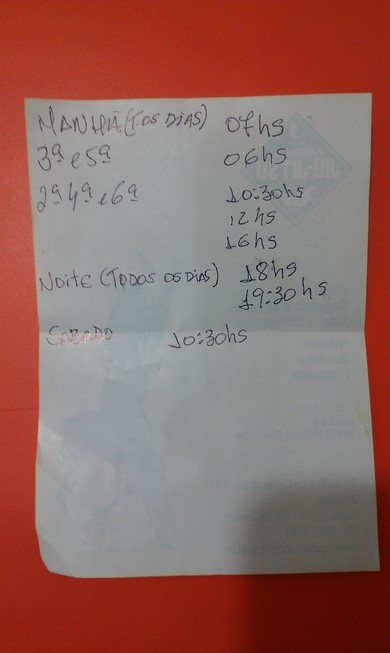 MANHÃ (TOS DIAS) 07hs
3ª e 5ª 06hs
2ª 4ª e 6ª 10:30hs
12hs
16hs
NOITE (TODOS OS DIAS) 18hs
19:30hs
SABADO 10:30hs
JIU-JITSU